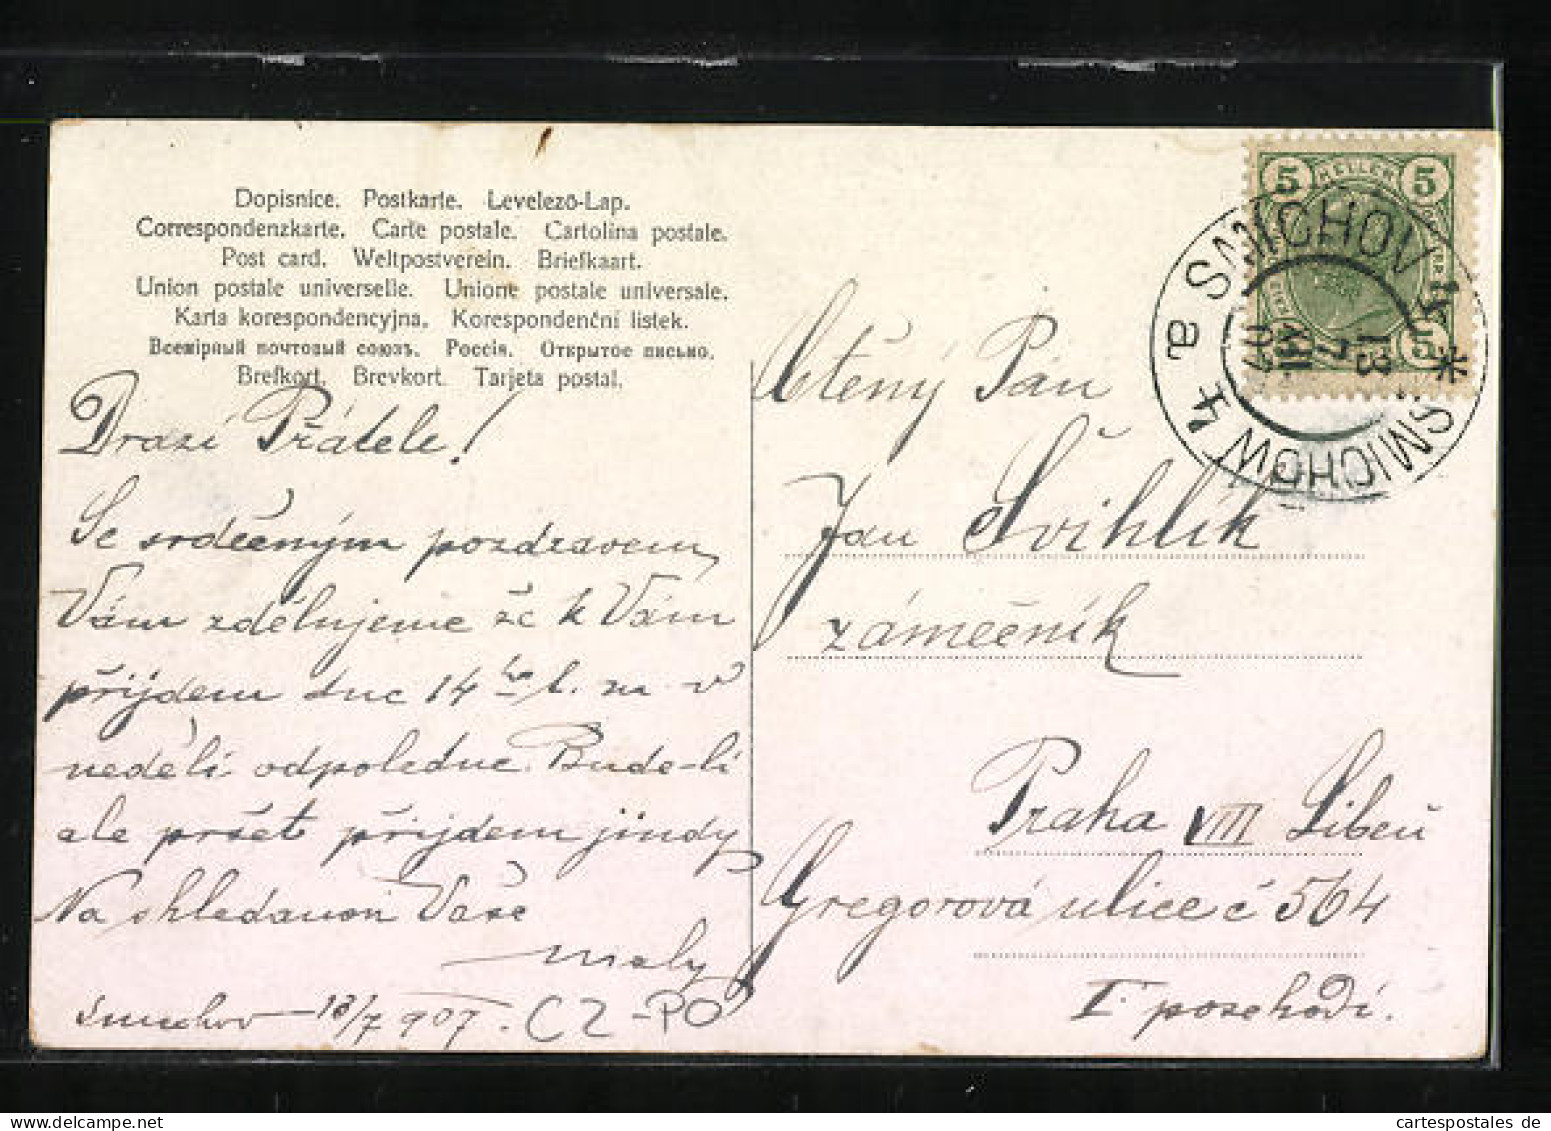 Dopisnice. Postkarte. Levelező-Lap.
Correspondenzkarte. Carte postale. Cartolina postale.
Post card. Weltpostverein. Briefkaart.
Union postale universelle. Unione postale universale.
Karta korespondencyjna. Korespondenční listek.
Всемірный почтовый союзъ. Россія. Открытое письмо.
Brefkort. Brevkort. Tarjeta postal.
Drazí Přátele!
Se srdečným pozdravem
Vám zdělujeme že k Vám
přijdem dne 14 ho t. m. v
neděli odpoledne. Bude-li
ale pršet přijdem jindy
Na shledanou Vaše
Maly
Smichov 13/7 907. CZ-PO
5 HELLER 5
5
SMICHOV
SMICHOW
a
4
13
7
07
Ctěný Pán
Jan Švihlík
zámečník
Praha VIII Libeň
Gregorová ulice č 564
I poschodí.
cartespostales de